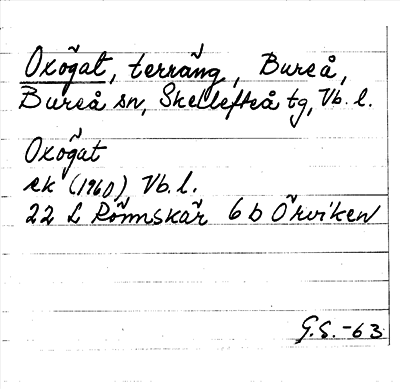 Oxögat, terräng, Bureå,
Bureå sn, Skellefteå tg, Vb. l.
Oxögat
ek (1960) Vb. l.
22 L Rönnskär 6 b Örviken
G.S. -63